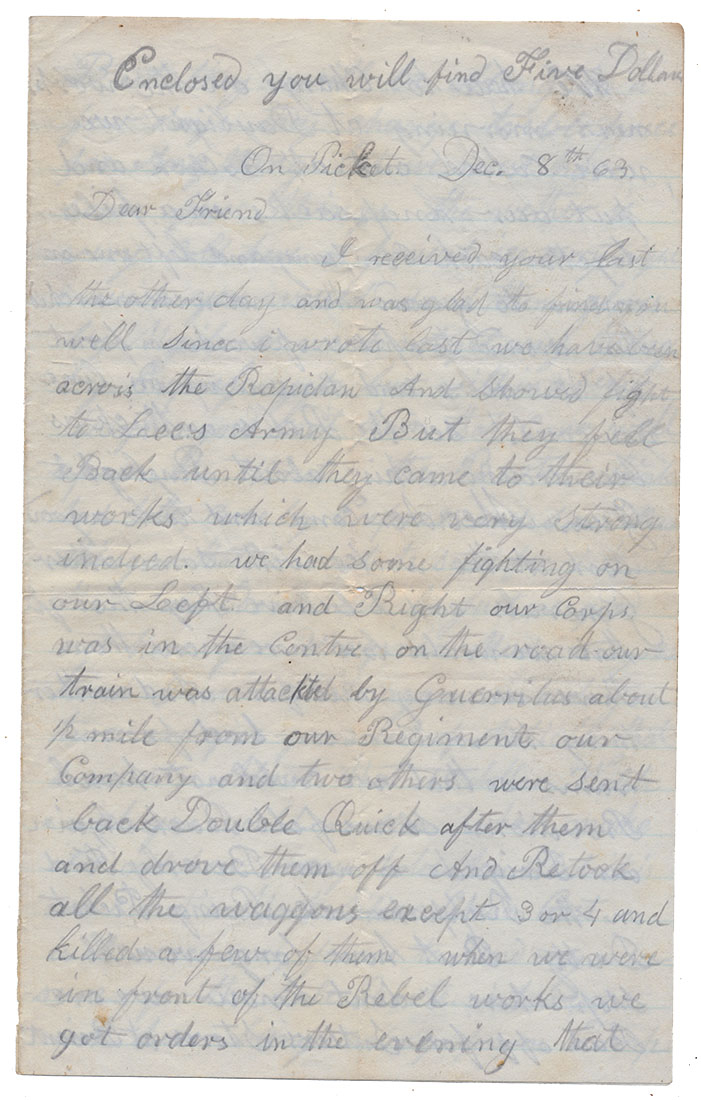 Enclosed you will find Five Dollars
On Picket Dec. 8th 63
Dear Friend
I received your last
the other day and was glad to find you
well Since i wrote last we have been
across the Rapidan And Showed fight
to Lees Army But they fell
Back until they came to their
works which were very Strong
indeed. we had some fighting on
our Left and Right our Corps
was in the Centre on the road our
train was attackted by Guerrilas about
1/2 mile from our Regiment our
Company and two others were sent
back Double Quick after them
and drove them off And Retook
all the waggons except 3 or 4 and
killed a few of them when we were
in front of the Rebel works we
got orders in the evening that